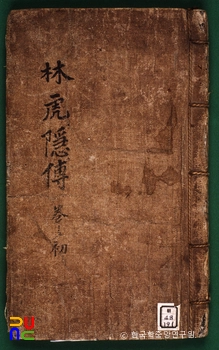 林虎隱傳
卷之初
한국학중앙연구원